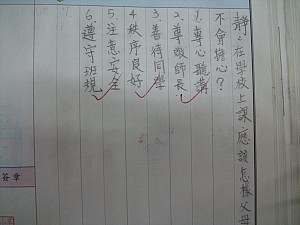 靜:在學校上課應該怎樣父母
不會擔心?
1.專心聽講
2.尊敬師長
3.善待同學
4.秩序良好
5.注意安全
6.遵守班規
簽章